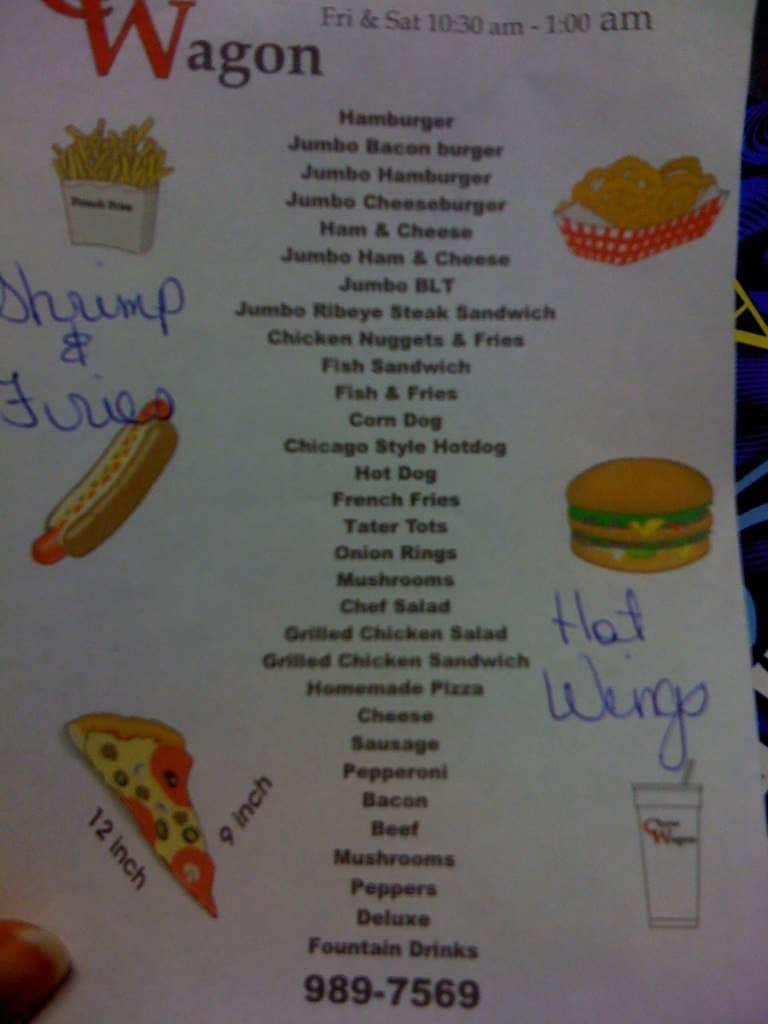 Fri & Sat 10:30 am - 1:00 am
Wagon
Hamburger
Jumbo Bacon burger
Jumbo Hamburger
Jumbo Cheeseburger
Ham & Cheese
Jumbo Ham & Cheese
Jumbo BLT
Jumbo Ribeye Steak Sandwich
Chicken Nuggets & Fries
Fish Sandwich
Fish & Fries
Corn Dog
Chicago Style Hotdog
Hot Dog
French Fries
Tater Tots
Onion Rings
Mushrooms
Chef Salad
Grilled Chicken Salad
Grilled Chicken Sandwich
Homemade Pizza
Cheese
Sausage
Pepperoni
Bacon
Beef
Mushrooms
Peppers
Deluxe
Fountain Drinks
989-7569
French Fries
Shrimp
&
Fries
Hot
Wings
12 inch
9 inch
Wagon